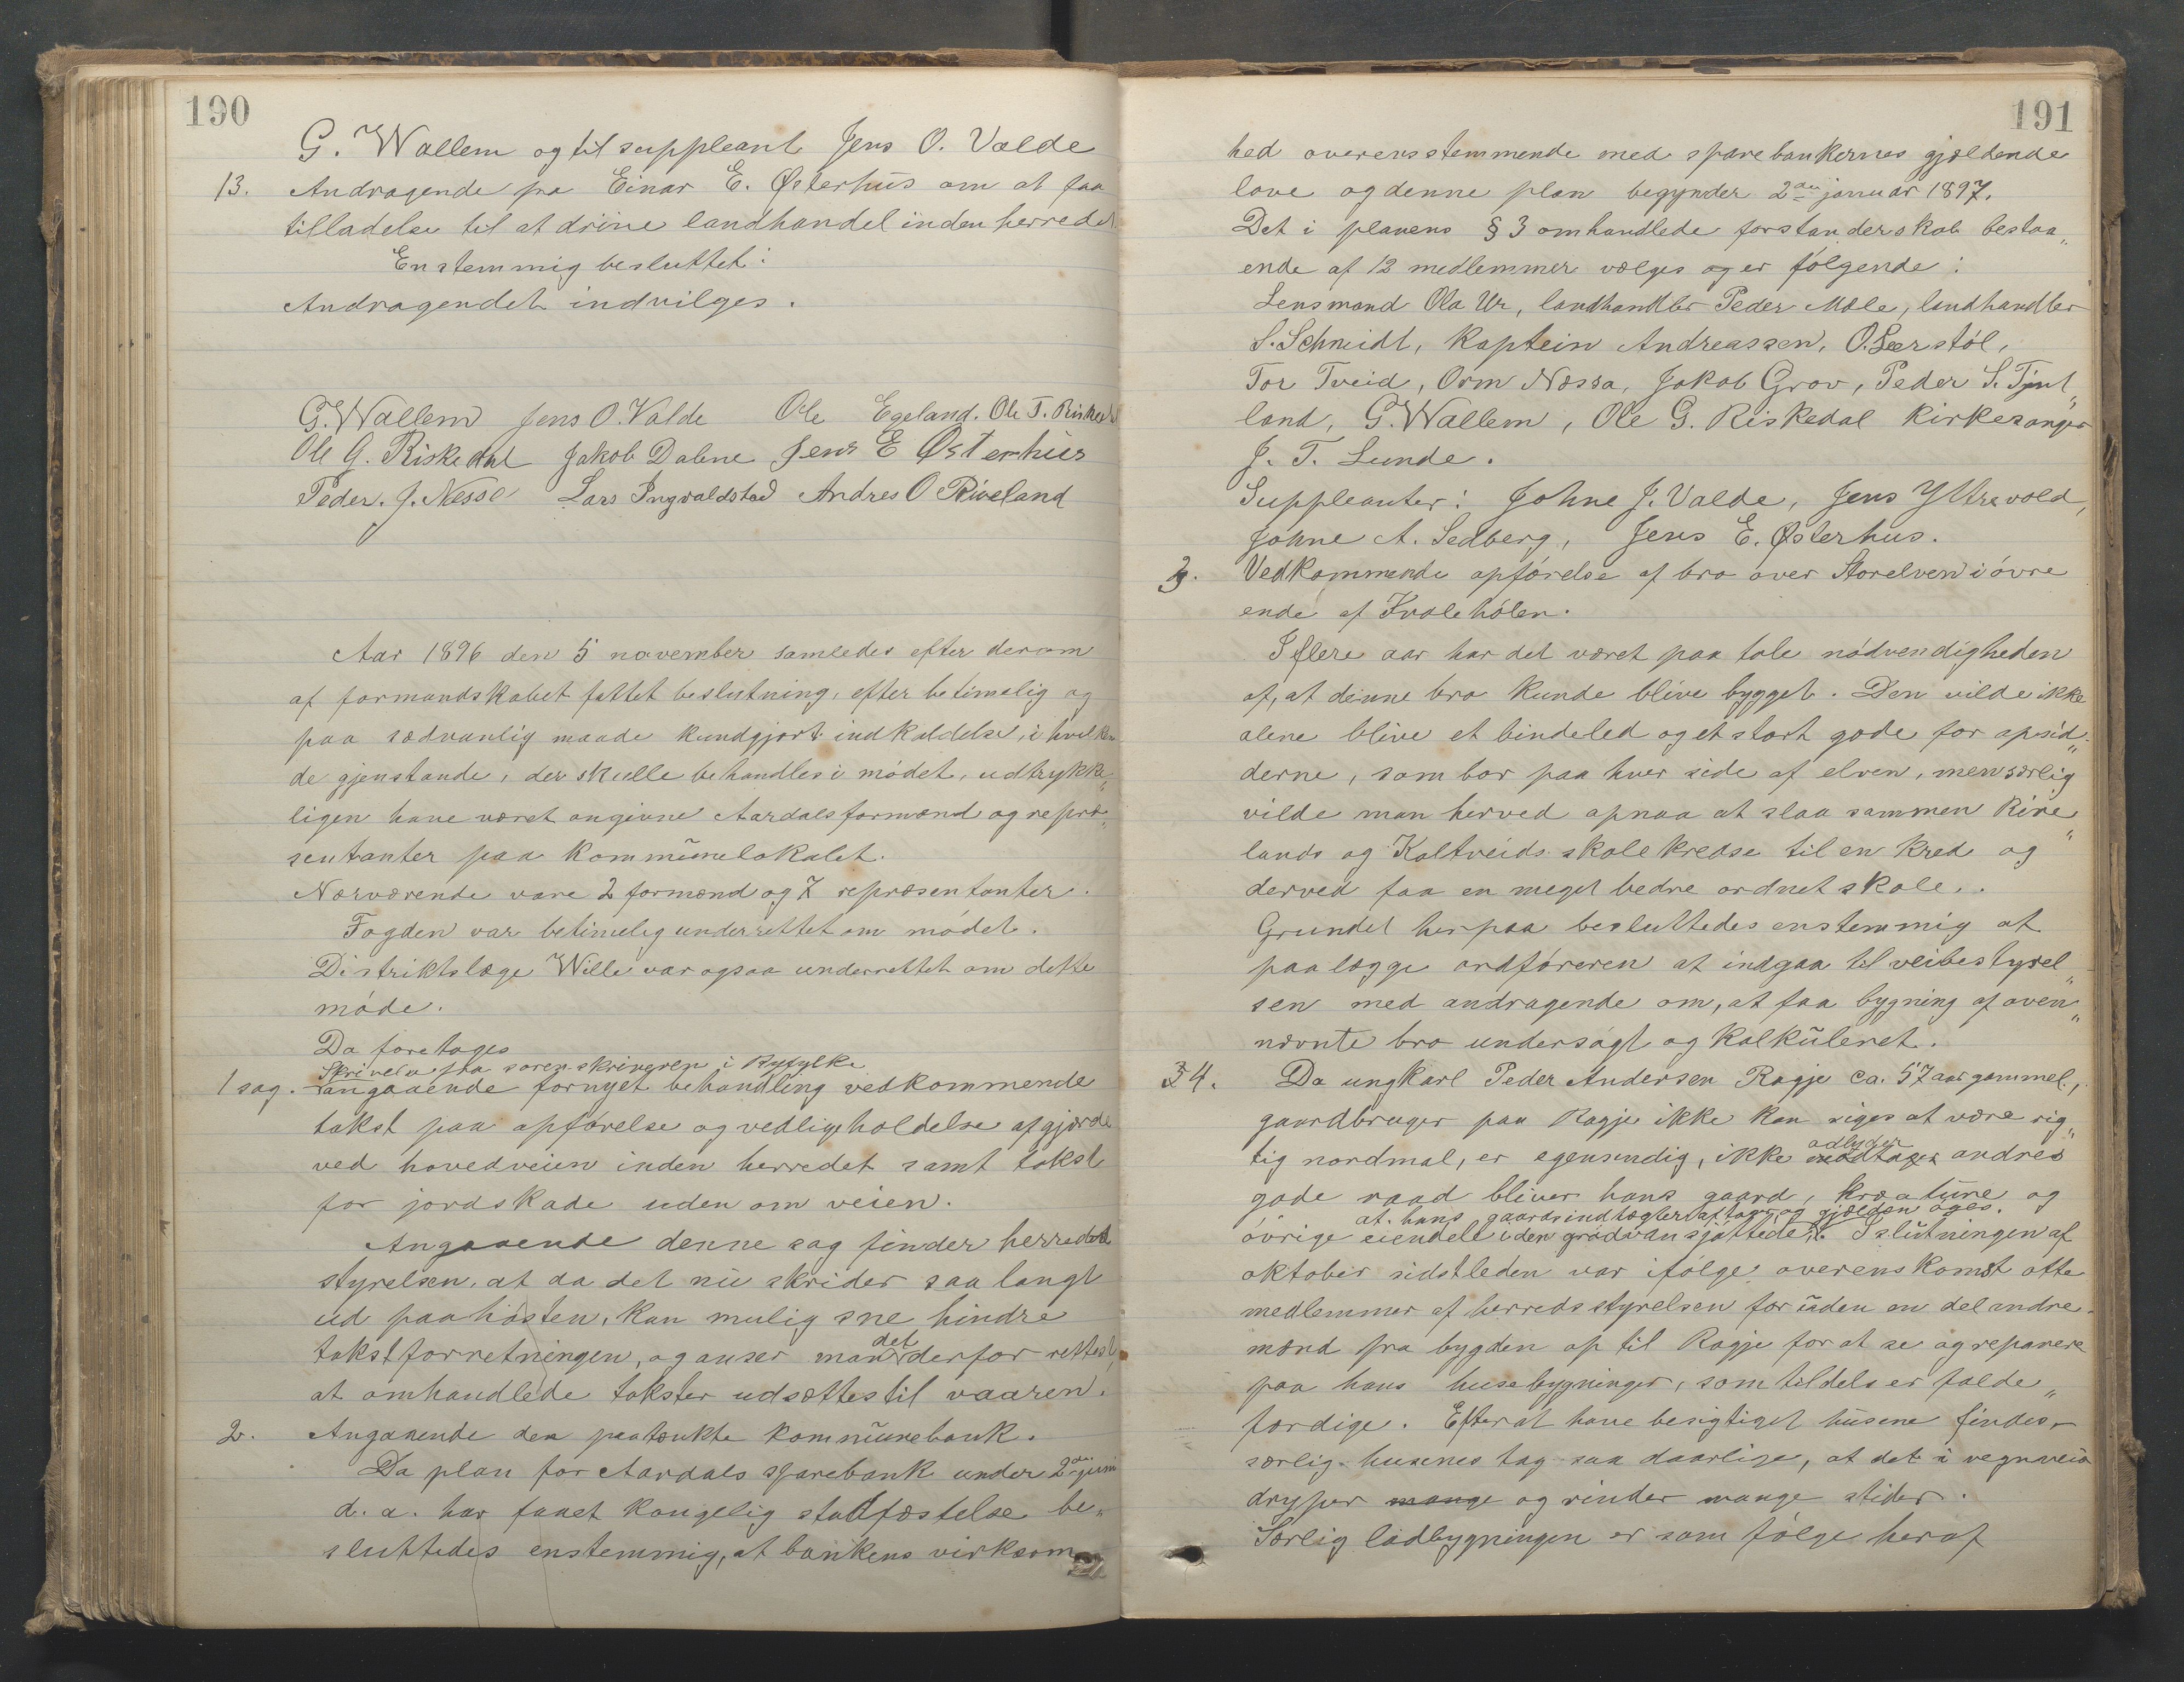 190
G. Wallem og til suppleant Jens O. Valde
13. Andragende fra Einar E. Østerhus om at faa
tilladelse til at drive landhandel inden herredet
Enstemmig besluttet:
Andragendet indvilges.
G. Wallem Jens O. Valde Ole Egeland. Ole T. Riskedal
Ole G. Riskedal Jakob Dalene Jens E Østerhus
Peder. J. Nesse Lars Ingvaldstad Andres O Riveland
Aar 1896 den 5 november samledes efter derom
af formandskabet fattet beslutning, efter betimelig og
paa sædvanlig maade kundgjort indkaldelse, i hvilken
de gjenstande, der skulle behandles i mödet, udtrykke„
ligen have været angivne Aardals formænd og repræ„
sentanter paa kommunelokalet.
Nærværende vare 2 formænd og 7 repræsentanter.
Fogden var betimelig underrettet om mödet.
Distriktslæge Wille var ogsaa underrettet om dette
möde.
Da foretoges
Skrivelse fra sorenskriveren i Ryfylke
1 sag. angaaende fornyet behandling vedkommende
takst paa opförelse og vedligeholdelse af gjærde
ved hovedveien inden herredet samt takst
for jordskade uden om veien.
Angaaende denne sag finder herreds
styrelsen, at da det nu skrider saa langt
ud paa hösten, kan mulig sne hindre
det
takstforretningen, og anser man derfor rettest,
at omhandlede takster udsættes til vaaren.
2. Angaaende den paatænkte kommunebank.
Da plan for Aardals sparebank under 2den juni
d. a. har faaet kongelig stadfæstelse be„
sluttedes enstemmig, at bankens virksom
191
hed overensstemmende med sparebankernes gjældende
love og denne plan begynder 2den januar 1897.
Det i planens § 3 omhandlede forstanderskab bestaa„
ende af 12 medlemmer vælges og er fölgende:
Lensmand Ola Ur, landhandler Peder Mæle, landhandler
S. Schmidt, Kaptein Andreassen, O. Leerstöl,
Tor Tveid, Orm Næssa, Jakob Grov, Peder S. Tjent„
land, G. Wallem, Ole G. Riskedal Kirkesanger
J. T. Lunde.
Suppleanter: Johne J. Valde, Jens Yttravold,
Johne A. Sedberg, Jens E. Østerhus.
3. Vedkommende opförelse af bro over Storelven i övre
ende af Kvalehölen.
I flere aar har det været paa tale nödvendigheden
af, at denne bro kunde blive bygget. Den vilde ikke
alene blive et bindeled og et stort gode for opsid„
derne, som bor paa hver side af elven, men særlig
vilde man herved opnaa at slaa sammen Rive„
lands og Kaltveids skolekredse til en kreds og
derved faa en meget bedre ordnet skole.
Grundet herpaa besluttedes enstemmig at
paalægge ordföreren at indgaa til veibestyrel„
sen med andragende om, at faa bygning af oven„
nævnte bro undersögt og kalkuleret.
4. Da ungkarl Peder Andersen Ragje ca. 57 aar gammel,
gaardbruger paa Ragje ikke kan siges at være rig„
adlyder
tig nordmal, er egensindig, ikke modtager andres
gode raad bliver hans gaard, kreature og
at hans gaardsindtægter aftager og gjælden öges.
övrige eiendele i den grad vansjöttede, I slutningen af
oktober sidstleden var ifölge overenskomst otte
medlemmer af herredsstyrelsen foruden en del andre
mænd fra bygden op til Ragje for at se og reparere
paa hans husebygninger, som tildels er falde„
færdige. Efter at have besigtiget husene findes
særlig husenes tag saa daarlige, at det i regnveir
drypper mange og rinder mange stider.
Særlig ladbygningen er som fölge heraf